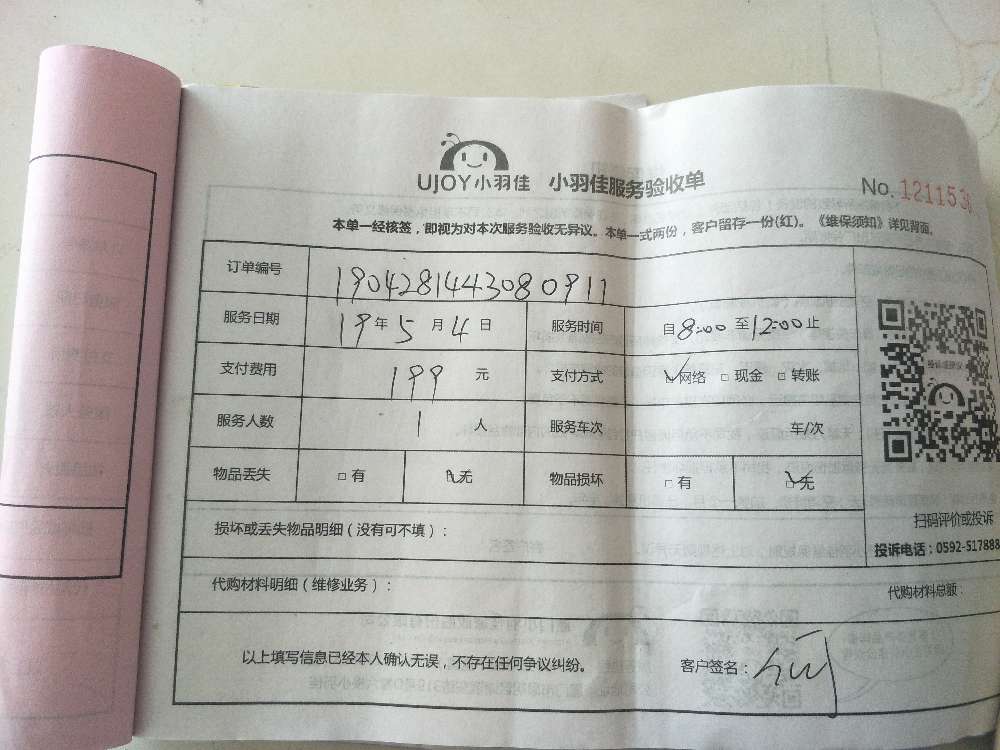 UJOY小羽佳 小羽佳服务验收单
No. 121153
本单一经核签，即视为对本次服务验收无异议。本单一式两份，客户留存一份(红)。《维保须知》详见背面。
订单编号 1904281443080911
服务日期 19年5月4日 服务时间 自8:00至12:00止
支付费用 199 元 支付方式 ☑网络 □现金 □转账
服务人数 1 人 服务车次 车/次
物品丢失 □有 ☑无 物品损坏 □有 ☑无
损坏或丢失物品明细（没有可不填）：
扫码评价或投诉
投诉电话：0592-517888
代购材料明细（维修业务）：
代购材料总额：
以上填写信息已经本人确认无误，不存在任何争议纠纷。 客户签名：